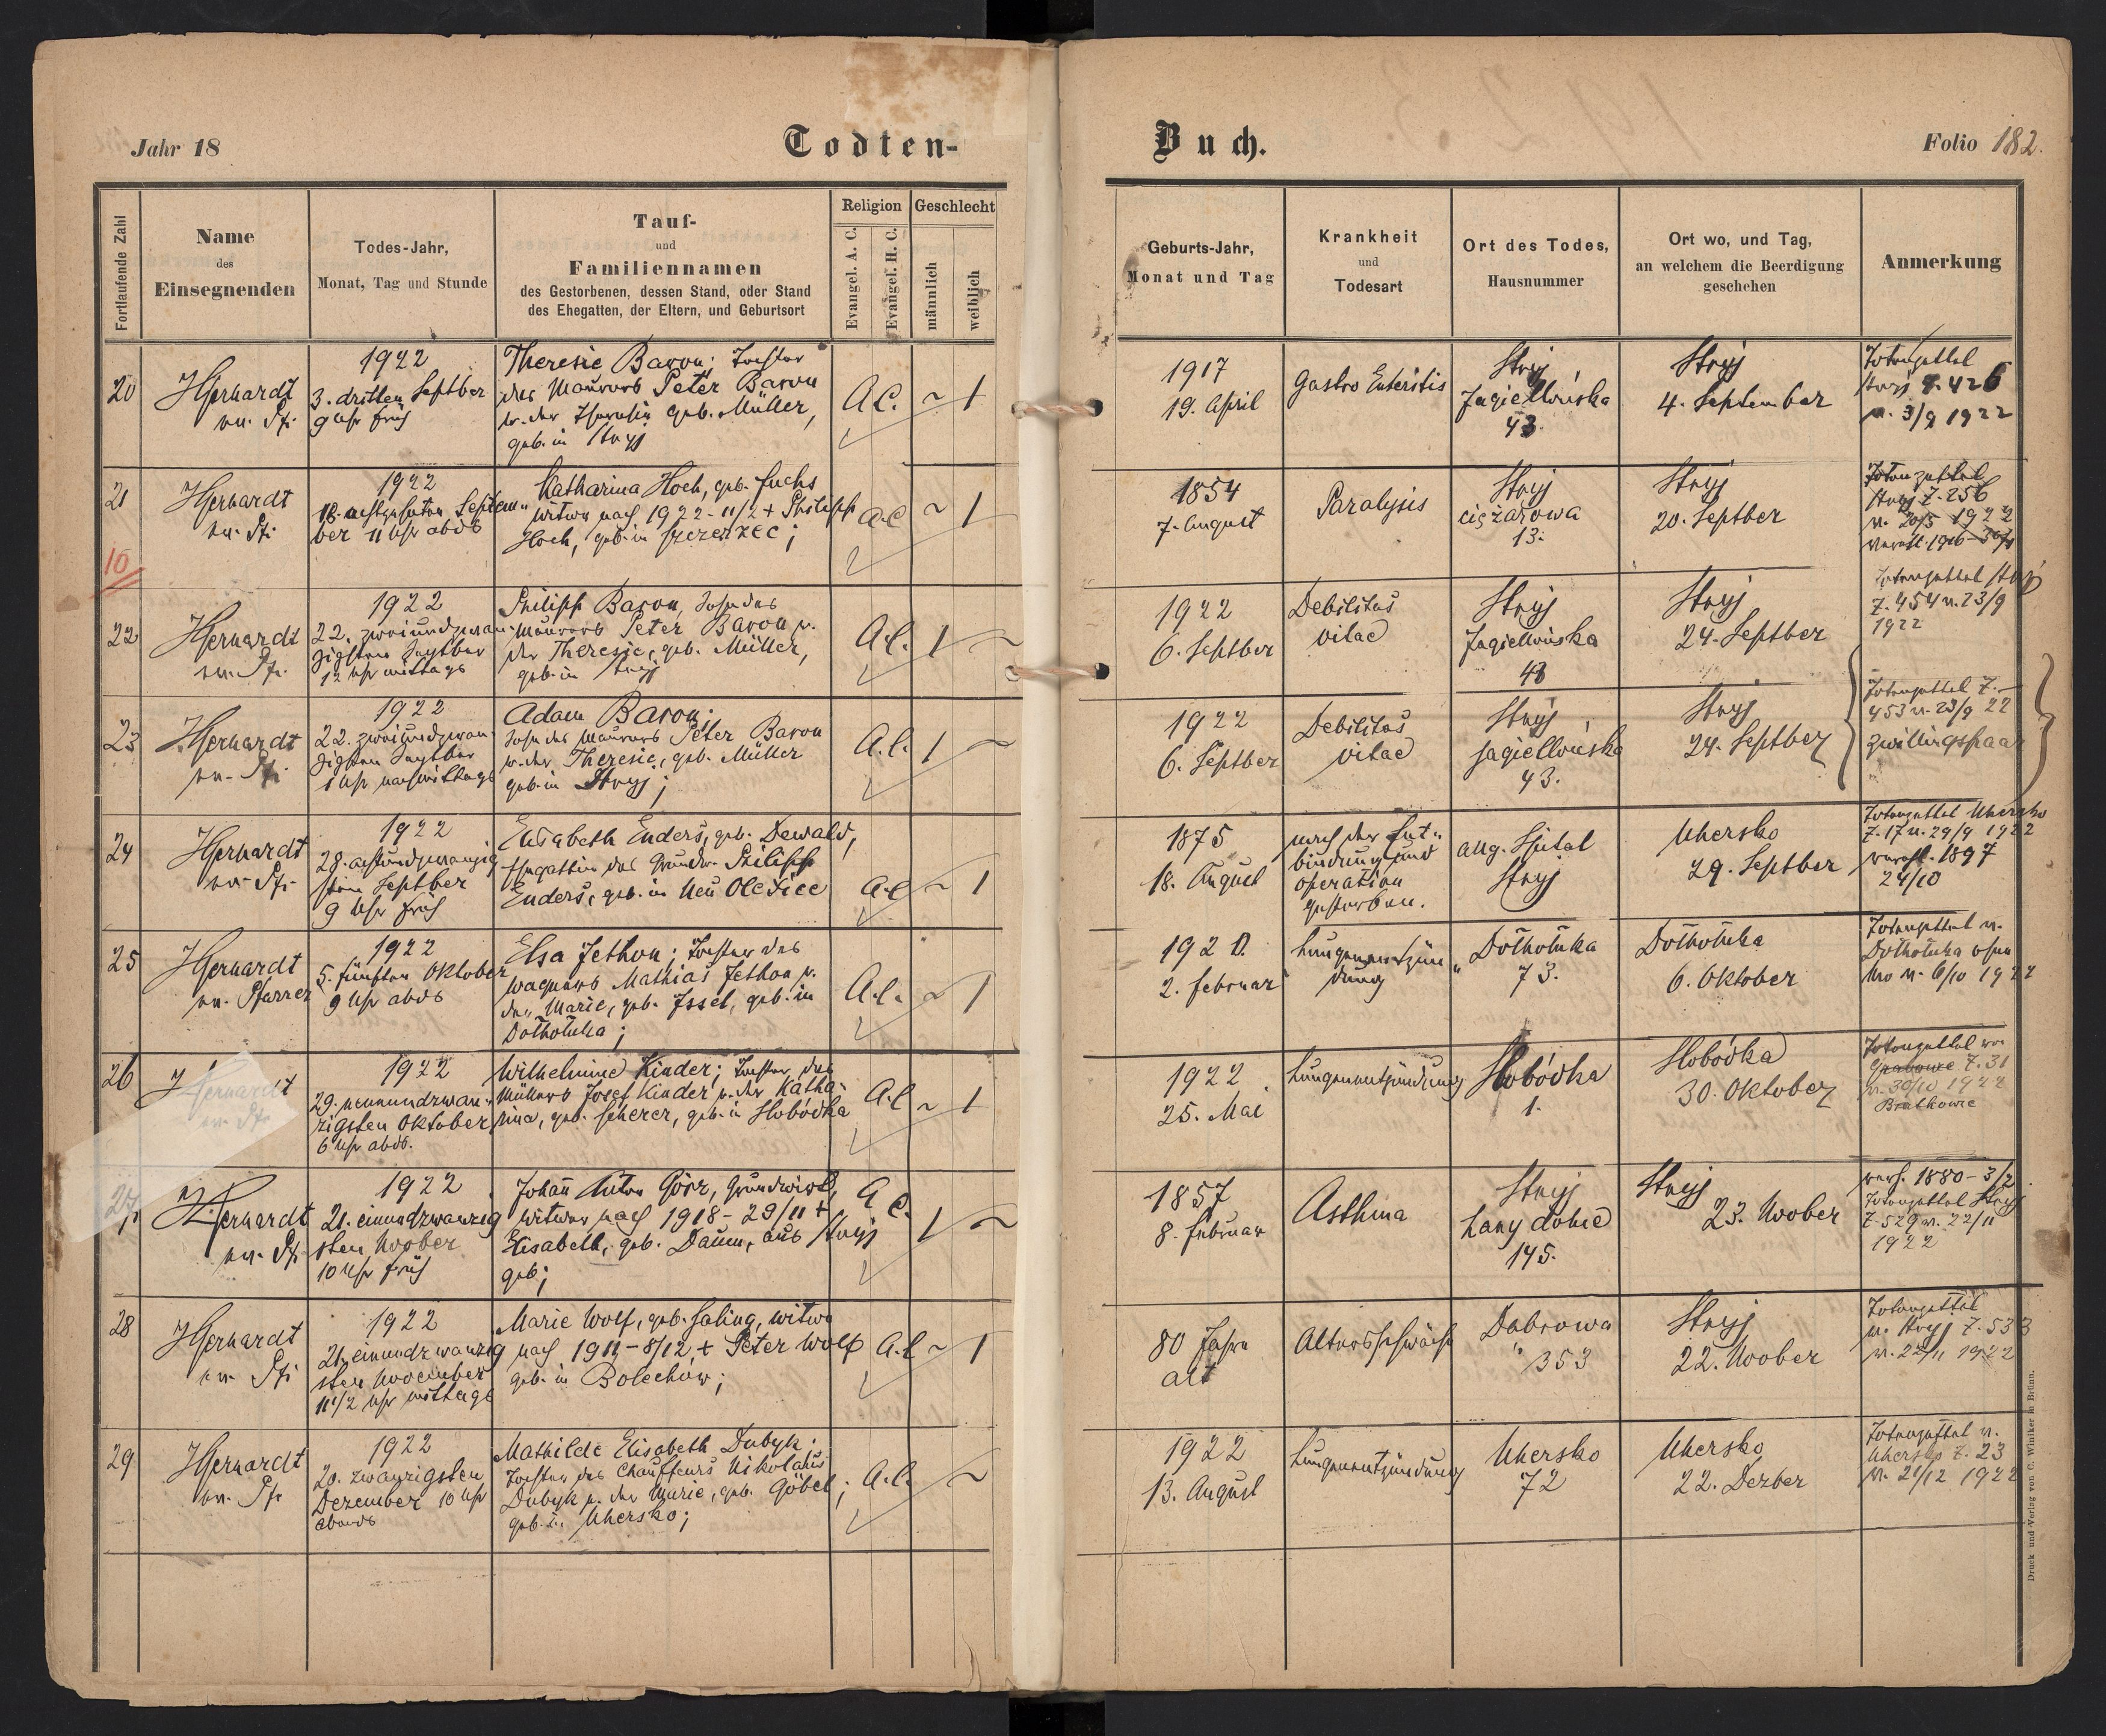 Jahr 18
Todten-
Fortlaufende Zahl
Name
des
Einsegnenden
Todes-Jahr,
Monat, Tag und Stunde
Tauf-
und
Familiennamen
des Gestorbenen, dessen Stand, oder Stand
des Ehegatten, der Eltern, und Geburtsort
Religion
Evangel. A. C.
Evangel. H. C.
Geschlecht
männlich
weiblich
20
1922
3. dritten Septber
9 Uhr früh
Theresie Baron; Tochter
des Maurers Peter Baron
u. der Theresie geb. Müller,
geb. in Stryj
A.C. ~ 1
21
10
1922
18. achtzehnten Septem-
ber 11 Uhr abds
Katharina Hoch, geb. Fuchs
Witwe nach 1922 - 11/2 + Philipp
Hoch, geb. in Szczerzec;
A.C. ~ 1
22
1922
22. zweiundzwan-
zigsten Septber
12 Uhr mittags
Philipp Baron, Sohn des
Maurers Peter Baron u.
der Theresie, geb. Müller,
geb. in Stryj
A.C. 1 ~
23
1922
22. zweiundzwan-
zigsten Septber
1 Uhr nachmittags
Adam Baron;
Sohn des Maurers Peter Baron
u. der Theresie, geb. Müller
geb. in Stryj;
A.C. 1 ~
24
1922
28. achtundzwanzig-
sten Septber
9 Uhr früh
Elisabeth Enders, geb. Dewald,
Ehegattin des Grundw. Philipp
Enders, geb. in Neu Oleksice
A.C. ~ 1
25
Pfarrer
1922
5. fünften Oktober
9 Uhr abds
Elsa Jethon; Tochter des
Wagners Mathias Jethon u.
der Marie, geb. Issel, geb. in
A.C. ~ 1
26
1922
29. neunundzwan-
zigsten Oktober
6 Uhr abds.
Wilhelmine Kinder; Tochter des
Müllers Josef Kinder u. der Katha-
rina, geb. Scherer, geb. in Slobódka
A.C. ~ 1
27
1922
21. einundzwanzig
sten Novber
10 Uhr früh
Johann Anton Görz, Grundwirt,
Witwer nach 1918 - 29/11 +
Elisabeth, geb. Daum, aus Stryj
geb;
A.C. 1 ~
28
1922
21. einundzwanzig
sten November
11 1/2 Uhr mittags
Marie Wolf, geb. Saling, Witwe
nach + Peter Wolf
geb. in Bolechów;
A.C. ~ 1
29
1922
20. zwanzigsten
Dezember 10 Uhr
abends
Mathilde Elisabeth Dubyk;
Tochter des Chauffeurs Nikolaus
Dubyk u. der Marie, geb. Göbel;
geb. in Uhersko;
A.C. ~
Buch.
Folio 182.
Geburts-Jahr,
Monat und Tag
Krankheit
und
Todesart
Ort des Todes,
Hausnummer
Ort wo, und Tag,
an welchem die Beerdigung
geschehen
Anmerkung
1917
19. April
Gastro Enteritis
Stryj
Jagiellońska
43.
Stryj
4. September
Totenzettel
Stryj Z. 426
v. 3/9 1922
1854
7. August
Paralysis
Stryj
Ciężarowa
13.
Stryj
20. Septber
Totenzettel
Stryj Z. 256
1922
6. Septber
Debilitas
vitae
Stryj
Jagiellońska
43
Stryj
24. Septber
Totenzettel Stryj
Z. 454 v. 23/9
1922
1922
6. Septber
Debilitas
vitae
Stryj
Jagiellońska
43.
Stryj
24. Septber
Totenzettel Z.
453 v. 23/9 22
Zwillingspaar
1875
18. August
nach der Ent-
bindung und
operation
gestorben.
allg. Spital
Stryj
Uhersko
29. Septber
Totenzettel Uhersko
Z. 17 v. 29/9 1922
verehl. 1897
24/10
1920.
2. Februar
Lungenentzün-
dung
73.
6. Oktober
Totenzettel v.
ohne
Nro v. 6/10 1922
1922
25. Mai
Lungenentzündung
Slobódka
1.
Slobódka
30. Oktober
Totenzettel von
Grabowce Z. 31
v. 30/10 1922
Bratkowce
1857
8. Februar
Asthma
Stryj
Łany dolne
145.
Stryj
23. Novber
1880 - 3/2
Totenzettel Stryj
Z. 529 v. 22/11
1922
80 Jahre
alt
Altersschwäche
Dabrowa
353
Stryj
22. Novber
Totenzettel
v. Stryj Z. 533
v. 22/11 1922
1922
13. August
Lungenentzündung
Uhersko
72
Uhersko
22. Dezber
Totenzettel v.
Uhersko Z. 23
v. 21/12 1922
Druck und Verlag von C. Winiker in Brünn.